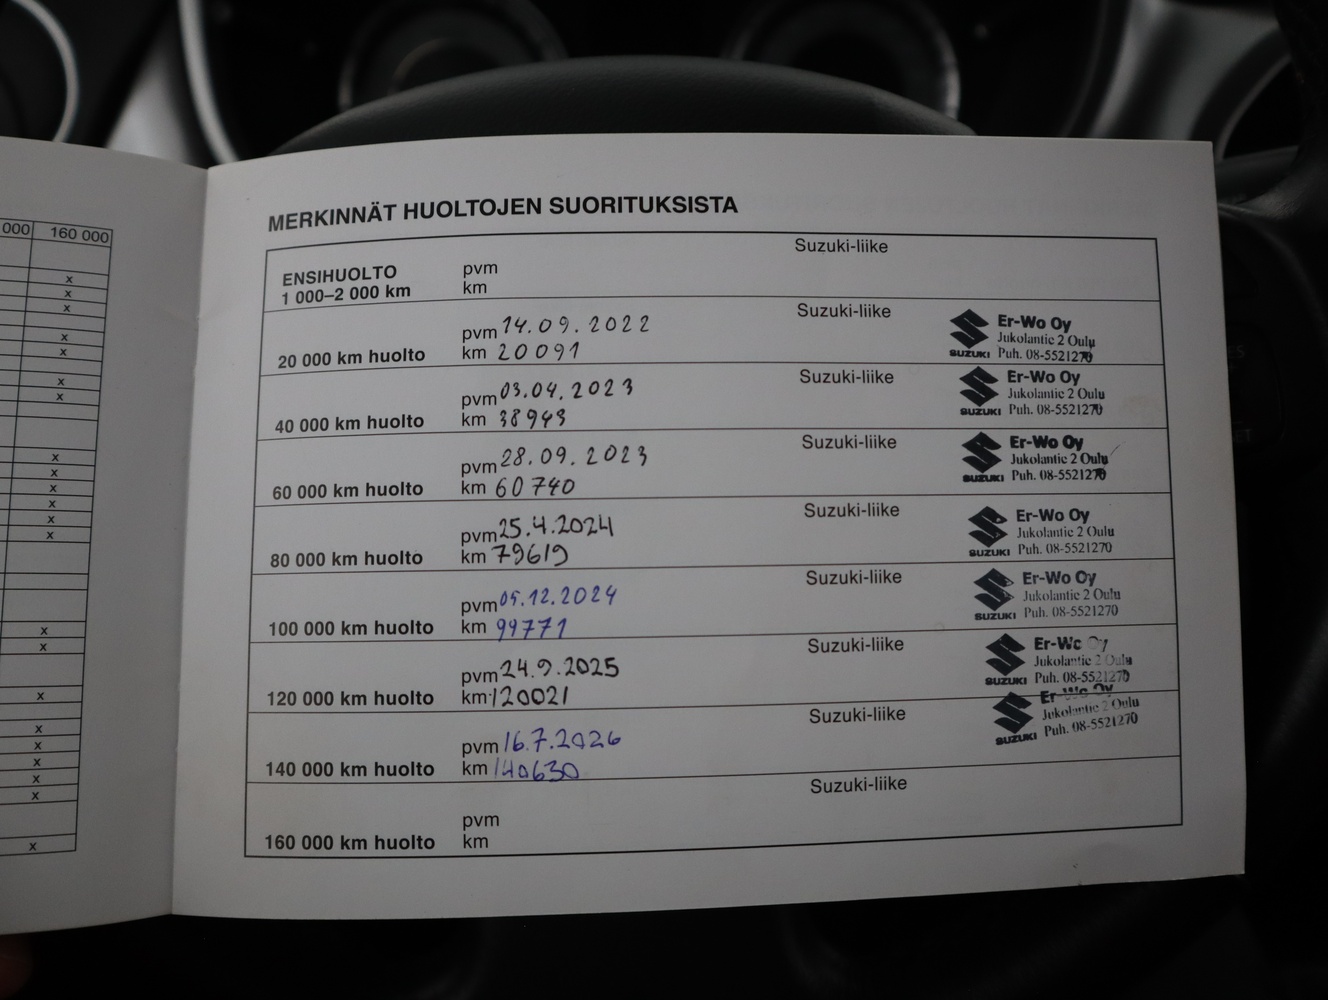 000 160 000
x
x
x
x
x
x
x
x
x
x
x
x
x
x
x
x
x
x
x
x
x
x
MERKINNÄT HUOLTOJEN SUORITUKSISTA
ENSIHUOLTO pvm Suzuki-liike
1 000–2 000 km km
pvm 14.09.2022 Suzuki-liike Er-Wo Oy
Jukolantie 2 Oulu
20 000 km huolto km 20091 SUZUKI Puh. 08-5521270
pvm 03.04.2023 Suzuki-liike Er-Wo Oy
Jukolantie 2 Oulu
40 000 km huolto km 38943 SUZUKI Puh. 08-5521270
pvm 28.09.2023 Suzuki-liike Er-Wo Oy
Jukolantie 2 Oulu
60 000 km huolto km 60740 SUZUKI Puh. 08-5521270
pvm 25.4.2024 Suzuki-liike Er-Wo Oy
Jukolantie 2 Oulu
80 000 km huolto km 79619 SUZUKI Puh. 08-5521270
pvm 05.12.2024 Suzuki-liike Er-Wo Oy
Jukolantie 2 Oulu
100 000 km huolto km 99771 SUZUKI Puh. 08-5521270
pvm 24.9.2025 Suzuki-liike Er-Wo Oy
Jukolantie 2 Oulu
120 000 km huolto km 120021 SUZUKI Puh. 08-5521270
pvm 16.7.2026 Suzuki-liike Er-Wo Oy
Jukolantie 2 Oulu
140 000 km huolto km 140630 SUZUKI Puh. 08-5521270
pvm Suzuki-liike
160 000 km huolto km